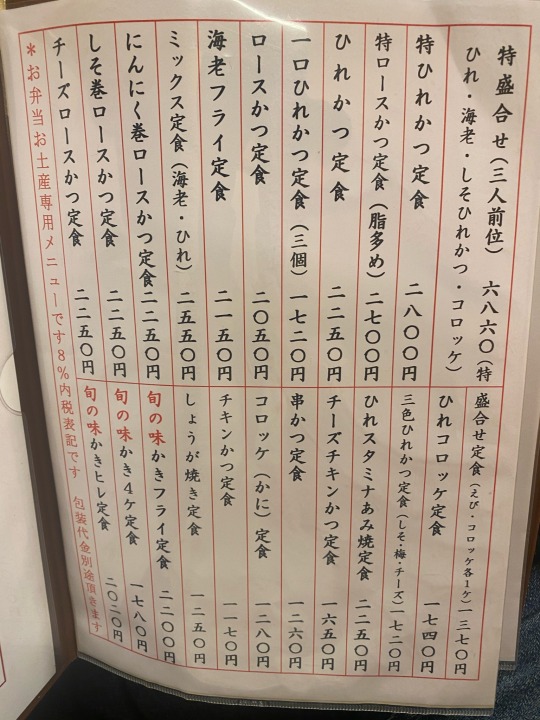 特盛合せ（三人前位）　六八六〇（特
ひれ・海老・しそひれかつ・コロッケ）
特ひれかつ定食　二八〇〇円
特ロースかつ定食（脂多め）　二七〇〇円
ひれかつ定食　二二五〇円
一口ひれかつ定食（三個）　一七二〇円
ロースかつ定食　二〇五〇円
海老フライ定食　二一五〇円
ミックス定食（海老・ひれ）　二五五〇円
にんにく巻ロースかつ定食　二二五〇円
しそ巻ロースかつ定食　二二五〇円
チーズロースかつ定食　二二五〇円
盛合せ定食（えび・コロッケ各1ケ）一三七〇円
ひれコロッケ定食　一七四〇円
三色ひれかつ定食（しそ・梅・チーズ）一七二〇円
ひれスタミナあみ焼定食　二二五〇円
チーズチキンかつ定食　一六五〇円
串かつ定食　一二六〇円
コロッケ（かに）定食　一二八〇円
チキンかつ定食　一一七〇円
しょうが焼き定食　一二五〇円
旬の味かきフライ定食　二二〇〇円
旬の味かき4ケ定食　一七八〇円
旬の味かきヒレ定食　二〇二〇円
＊お弁当お土産専用メニューです8％内税表記です　包装代金別途頂きます